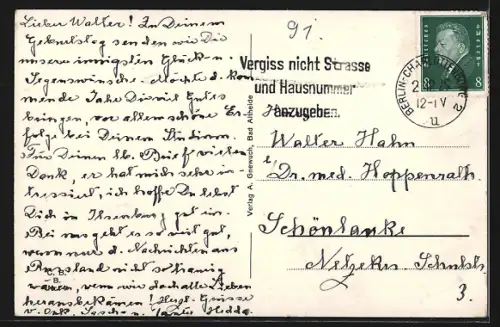 Lieber Walter! Zu Deinem
Geburtstag senden wir Dir
unsere innigsten Glück- u.
Segenswünsche. Möcht d. kom-
mende Jahr Dir viel Gutes
bringen, vor allem schöne Er-
folge bei Deinem Studium.
Für Deinen lb. Brief vielen
Dank, er hat mich sehr in-
teressiert, ich hoffe Du lebst
Dich in Ilsenburg gut ein.
Bei uns geht es so weit gut,
wenn nur d. Nachrichten aus
Russland nicht so traurig
wären, wenn wir doch alle Lieben
herausbekämen! Herzl. Grüsse
v. Onk. u. Tante Hedda
C. B.
B.
Verlag A. Bad Altheide
91.
Vergiss nicht Strasse
und Hausnummer
anzugeben.
BERLIN-CHARLOTTENBURG 2
12-1 V
u
Deutsches Reich
8 8
Herrn
Walter Hahn
Dr. med. Hoppenrath
Schönlanke
Netzekr. Schulstr.
3.
3